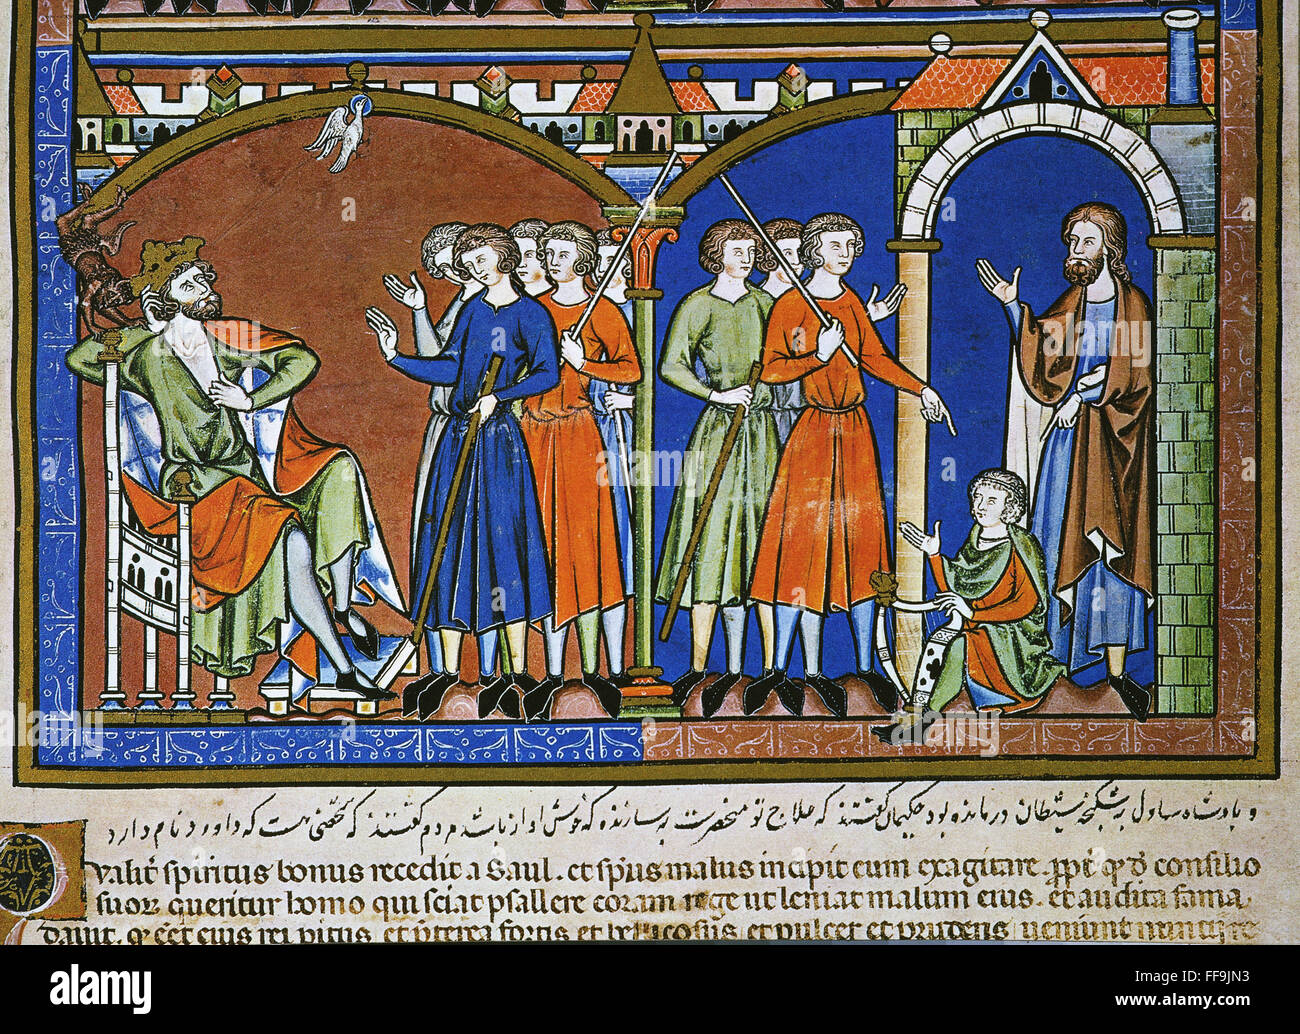 و پادشاه ساول بر شکنجهٔ شیطان درمانده بود حکیمان گفتند که علاج تو منحصرست به سازنده که خوش آواز باشد مردم گفتند که شخصی هست که داود نام دارد
Qualit' spiritus bonus recedit a Saul. et sp̄us malus incipit eum exagitare. ꝓpt' qd̄ consilio
suor̄. queritur homo qui sciat psallere coram rege ut leniat malum eius. et audita fama
Dauit. q̄ eēt eius rei peritus. et p̄terea fortis et bellicosus et pulcer et prudens
alamy
alamy
Image ID: FF9JN3
www.alamy.com